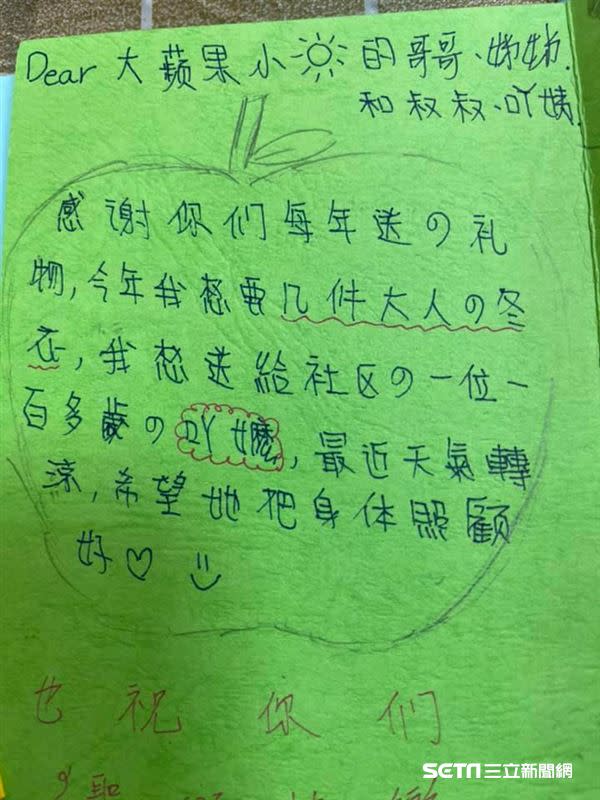 Dear 大蘋果小☀的哥哥、姊姊、
和叔叔、吖姨.
感谢你们每年送の礼
物,今年我想要几件大人の冬
衣,我想送給社区の一位一
百多歲の吖嬤,最近天氣轉
涼,希望她把身体照顧
好♡ ☺
也祝你们
聖
SETN 三立新聞網